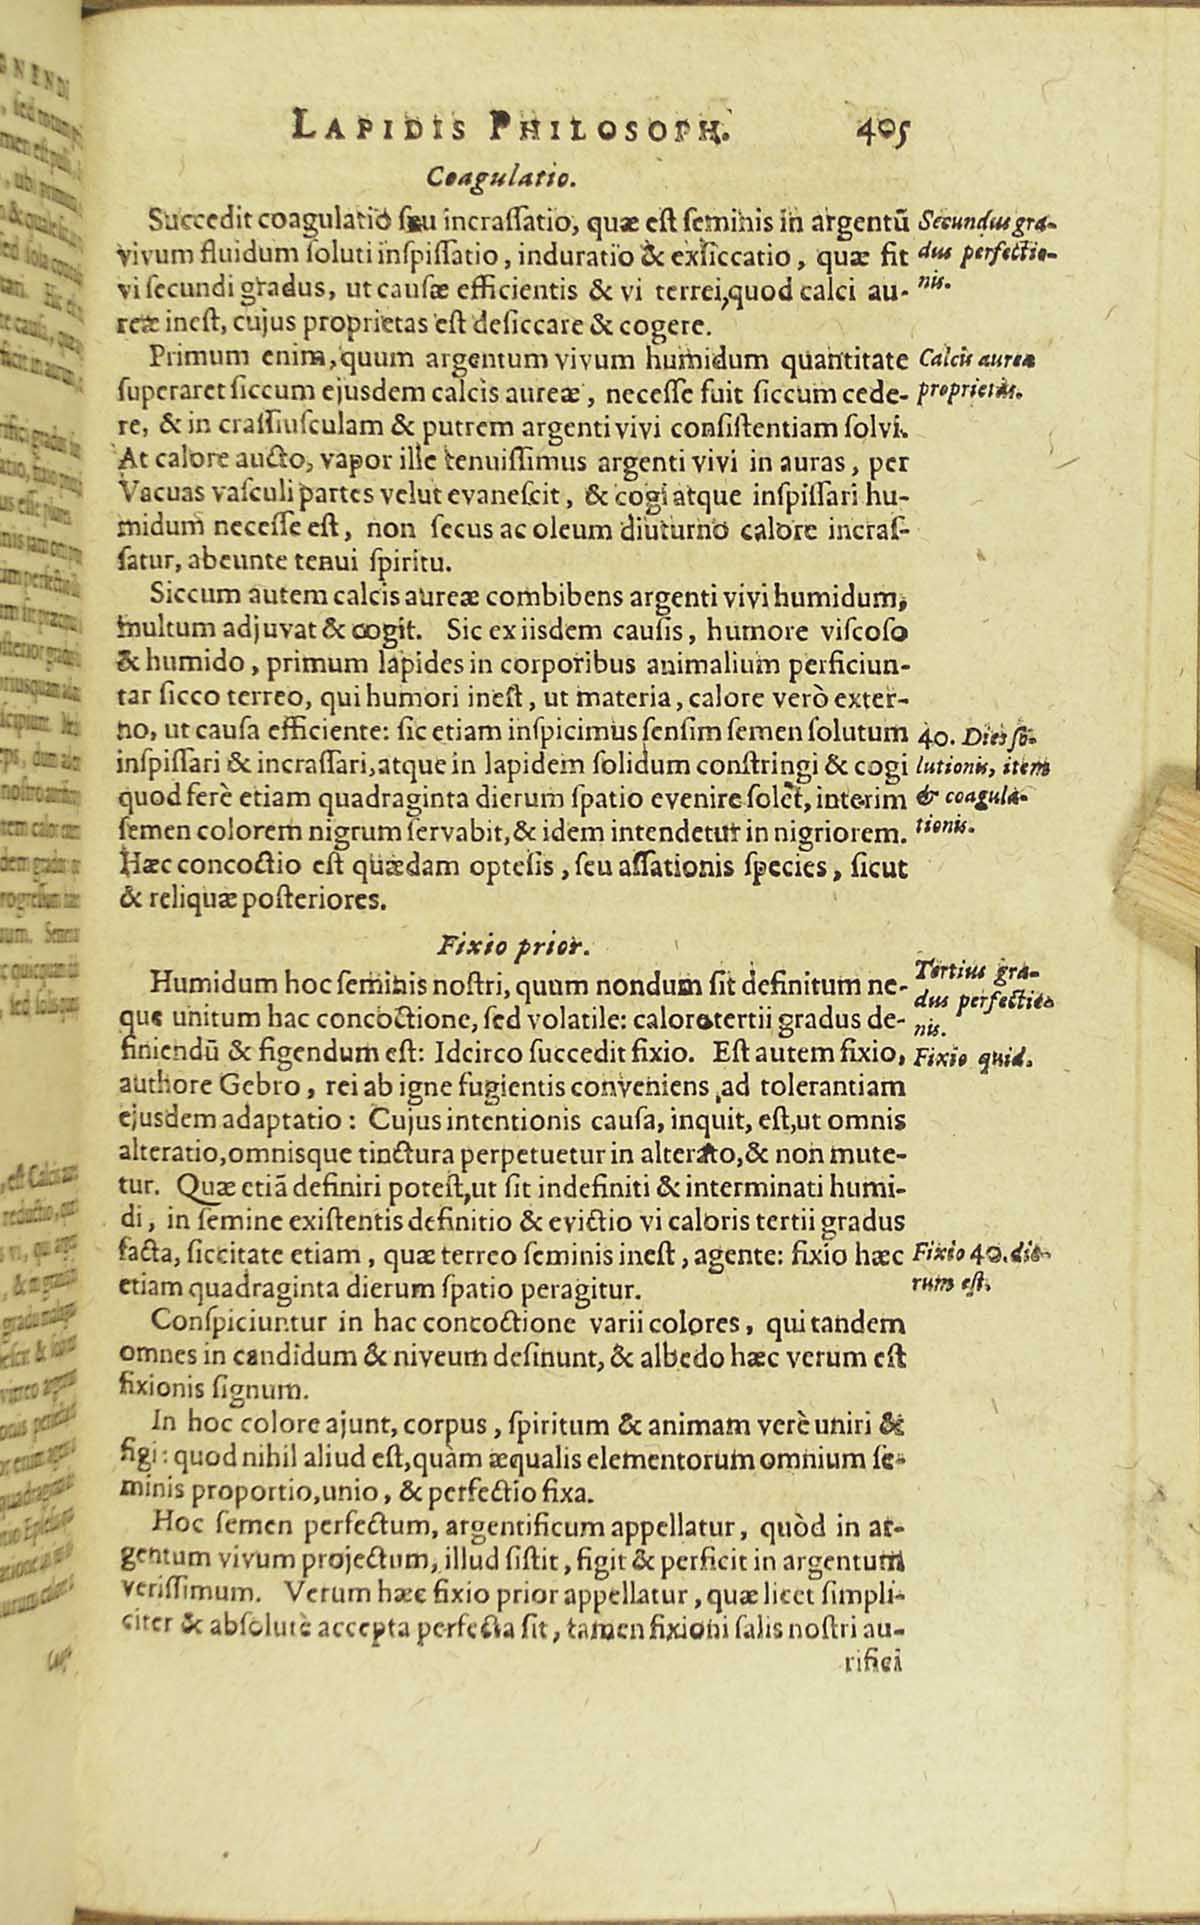 LAPIDIS PHILOSOPH. 405
Coagulatio.
Succedit coagulatio seu incrassatio, quæ est seminis in argentū
Secundus gra-
vivum fluidum soluti inspissatio, induratio & exsiccatio, quæ fit
dus perfectio-
vi secundi gradus, ut causæ efficientis & vi terrei, quod calci au-
nis.
reæ inest, cujus proprietas est desiccare & cogere.
Primum enim, quum argentum vivum humidum quantitate
Calcis aureæ
superaret siccum ejusdem calcis aureæ, necesse fuit siccum cede-
proprietas.
re, & in crassiusculam & putrem argenti vivi consistentiam solvi.
At calore aucto, vapor ille tenuissimus argenti vivi in auras, per
Vacuas vasculi partes velut evanescit, & cogi atque inspissari hu-
midum necesse est, non secus ac oleum diuturno calore incras-
satur, abeunte tenui spiritu.
Siccum autem calcis aureæ combibens argenti vivi humidum,
multum adjuvat & cogit. Sic ex iisdem causis, humore viscoso
& humido, primum lapides in corporibus animalium perficiun-
tar sicco terreo, qui humori inest, ut materia, calore verò exter-
no, ut causa efficiente: sic etiam inspicimus sensim semen solutum
40. Dies so-
inspissari & incrassari, atque in lapidem solidum constringi & cogi
lutionis, item
quod ferè etiam quadraginta dierum spatio evenire solet, interim
& coagula-
semen colorem nigrum servabit, & idem intendetur in nigriorem.
tionis.
Hæc concoctio est quædam optesis, seu assationis species, sicut
& reliquæ posteriores.
Fixio prior.
Humidum hoc seminis nostri, quum nondum sit definitum ne-
Tertius gra-
que unitum hac concoctione, sed volatile: calore tertii gradus de-
dus perfectio-
nis.
finiendū & figendum est: Idcirco succedit fixio. Est autem fixio,
Fixio quid.
authore Gebro, rei ab igne fugientis conveniens ad tolerantiam
ejusdem adaptatio: Cujus intentionis causa, inquit, est, ut omnis
alteratio, omnisque tinctura perpetuetur in alterato, & non mute-
tur. Quæ etiā definiri potest, ut sit indefiniti & interminati humi-
di, in semine existentis definitio & evictio vi caloris tertii gradus
facta, siccitate etiam, quæ terreo seminis inest, agente: fixio hæc
Fixio 40. die-
etiam quadraginta dierum spatio peragitur.
rum est.
Conspiciuntur in hac concoctione varii colores, qui tandem
omnes in candidum & niveum desinunt, & albedo hæc verum est
fixionis signum.
In hoc colore ajunt, corpus, spiritum & animam verè uniri &
figi: quod nihil aliud est, quàm æqualis elementorum omnium se-
minis proportio, unio, & perfectio fixa.
Hoc semen perfectum, argentificum appellatur, quòd in ar-
gentum vivum projectum, illud sistit, figit & perficit in argentum
verissimum. Verum hæc fixio prior appellatur, quæ licet simpli-
citer & absolutè accepta perfecta sit, tamen fixioni salis nostri au-
rifici